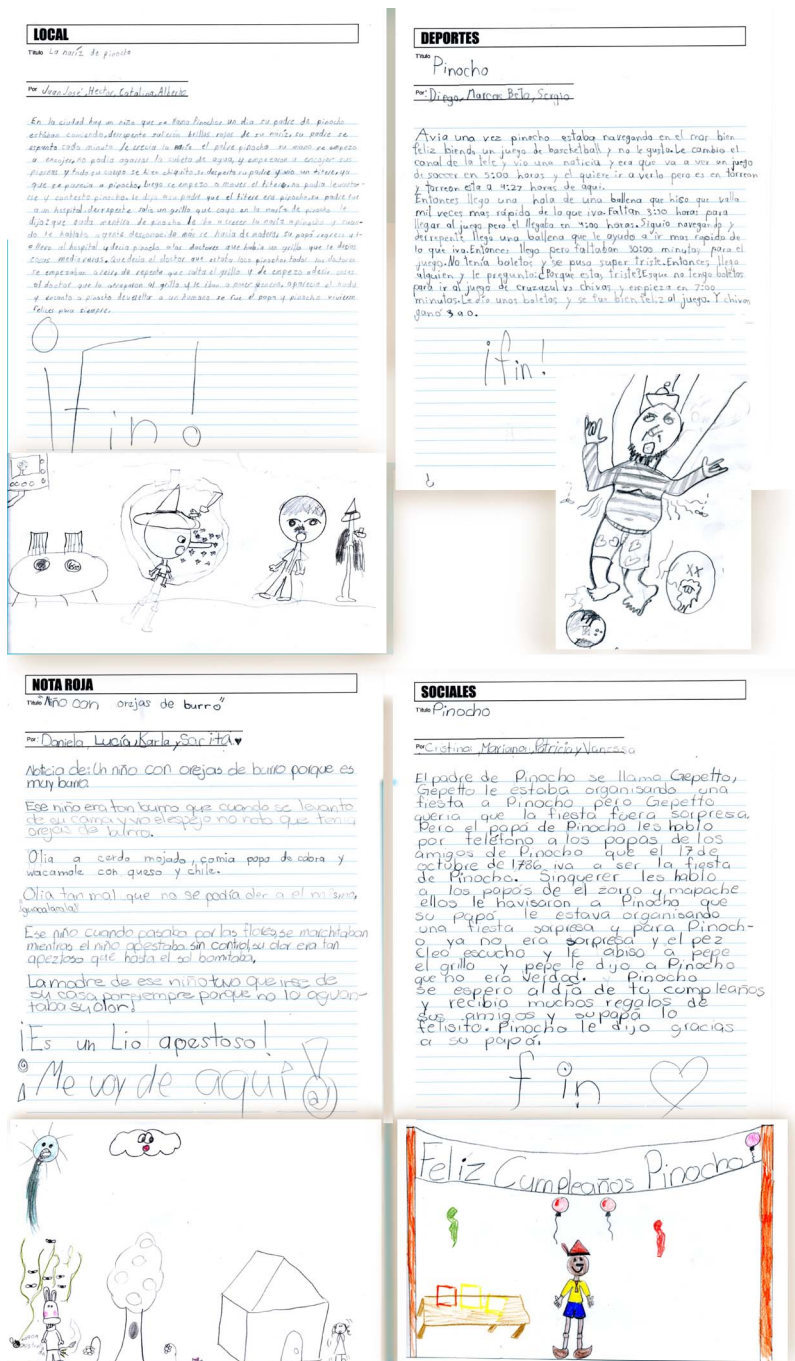 LOCAL
Título La nariz de pinocho
Por Juan José, Hector, Catalina, Alberto
En la ciudad hay un niño que se llama Pinocho, un dia su padre de pinocho
estaban comiendo, derrepente salieron brillos rojos de su nariz, su padre se
espanto cada minuto le crecia la nariz el padre pinocho su mano se empezo
a encojer, no podia agarrar la cubeta de agua, y empezaron a encojer sus
piernas y todo su cuerpo se hizo chiquito. Se desperto su padre y vio un titere, ya
que se parecia a pinocho, luego se empezo a mover el titere, no podia levantar-
se y contesto pinocho, le dijo a su padre que el titere era pinocho, su padre fue
a un hospital, derrepente salio un grillo que cayo en la nariz de pinocho le
dijo: que cada mentira de pinocho le iba a crecer la nariz a pinocho y cuando
le hablaba a gente desconocida mas se hacia de madera, su papá regreso y
llevo al hospital y decia pinocho a los doctores que habia un grillo que le decia
cosas
que decia el doctor que estaba loco pinocho, todos los doctores
se empezaron a reir, de repente que salta el grillo y
al doctor que lo atraparon al grillo y le iban a poner
aparecio el hada
y encanto a pinocho devuelta a un humano se fue el papa y pinocho vivieron
felices para siempre.
¡Fin!
DEPORTES
Título Pinocho
Por: Diego, Marcos Beto, Sergio
Avia una vez pinocho estaba navegando en el mar bien
feliz biendo un juego de barcketball y no le gustaba. Le cambio el
canal de la tele y vio una noticia y era que va a ver un juego
de soccer en 5:00 horas y el quiere ir a verlo pero es en torreon
y torreon esta a 4:27 horas de aqui.
Entonces llego una hola de una ballena que hiso que valla
mil veces mas rápido de lo que iva. Faltan 3:30 horas para
llegar al juego pero el llegaba en 4:00 horas. Siguio navegando y
derrepente llego una ballena que le ayudo a ir mas rapido de
lo que iva. Entonces llego pero faltaban 30:00 minutos para el
juego. No tenía boletos y se puso super triste. Entonces llego
alguien y le pregunto: ¿Porque estas triste? Esque no tengo boletos
para ir al juego de cruzazul vs chivas y empieza en 7:00
minutos. Le dio unos boletos y se fue bien feliz al juego. Y chivas
gano 3 a 0.
¡fin!
NOTA ROJA
Título "Niño con orejas de burro"
Por: Daniela, Lucía, Karla y Sarita ♥
Noticia de: Un niño con orejas de burro porque es
muy burro.
Ese niño era tan burro que cuando se levanto
de su cama y vio el espejo no noto que tenia
orejas de burro.
Olia a cerdo mojado, comia popo de cabra y
wacamale con queso y chile.
Olia tan mal que no se podía oler a el mismo,
¡guacalaaala!
Ese niño cuando pasaba por las flores, se marchitaban
mientras el niño apestaba sin control, su olor era tan
apezloso que hasta el sol bomitaba.
La madre de ese niño tuvo que irse de
su casa por siempre porque no lo aguan-
taba su olor!
¡Es un Lio apestoso!
¡Me voy de aqui!
SOCIALES
Título Pinocho
Por: Cristina, Mariana, Patricia y Vanessa
El padre de Pinocho se llama Gepetto,
Gepetto le estaba organisando una
fiesta a Pinocho pero Gepetto
queria que la fiesta fuera sorpresa.
Pero el papá de Pinocho les hablo
por teléfono a los papas de los
amigos de Pinocho que el 17 de
octubre de 1786 iva a ser la fiesta
de Pinocho. Sinquerer les hablo
a los papás de el zorro y mapache
ellos le havisaron a Pinocho que
su papá le estava organisando
una fiesta sorpresa y para Pinoch-
o ya no era sorpresa y el pez
Cleo escucho y le abiso a pepe
el grillo y pepe le dijo a Pinocho
que no era verdad. y Pinocho
se espero al día de tu cumpleaños
y recibio muchos regalos de
sus amigos y su papá lo
felisito. Pinocho le dijo gracias
a su papá.
fin
Feliz Cumpleaños Pinocho!